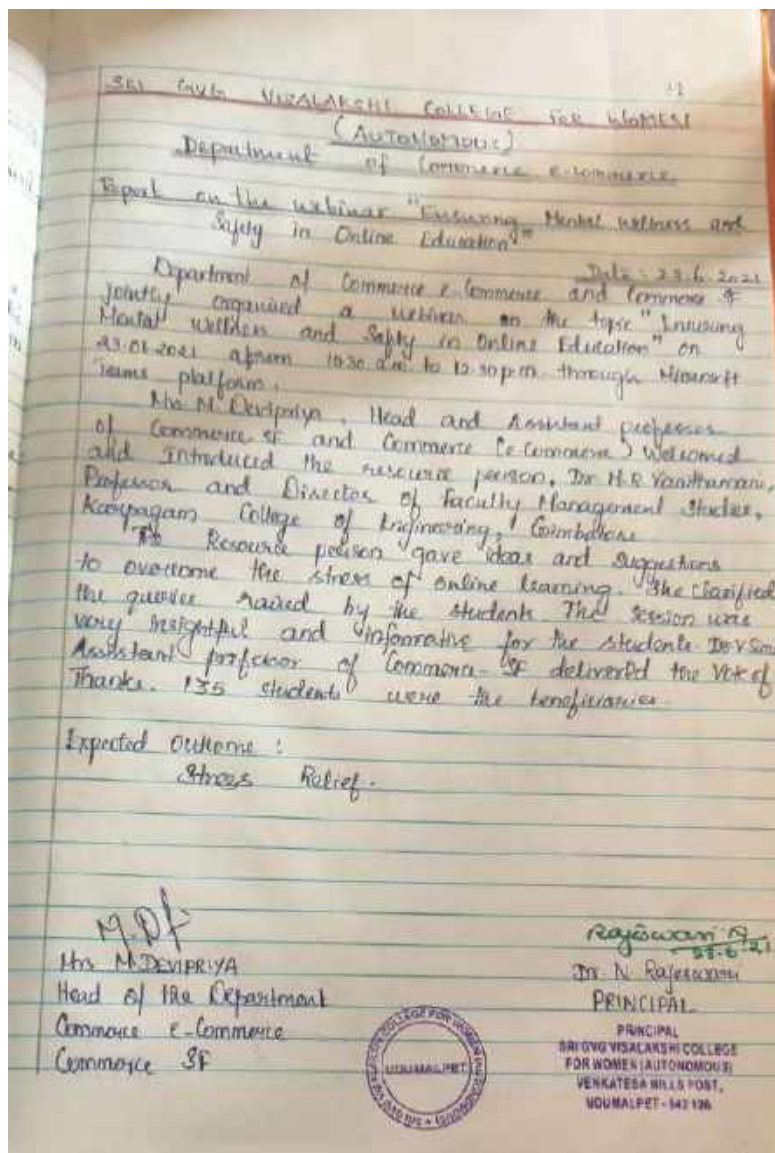 SRI GVG VISALAKSHI COLLEGE FOR WOMEN
(AUTONOMOUS)
Department of Commerce e-commerce
Report on the webinar "Ensuring Mental wellness and
Safety in Online Education"
Date: 23.6.2021
Department of Commerce e-Commerce and Commerce SF
jointly organised a webinar on the topic "Ensuring
Mental wellness and Safety in Online Education" on
23.06.2021 10.30 a.m. to 12.30 p.m. through Microsoft
Teams platform.
Mrs M. Devipriya, Head and Assistant professor
of Commerce SF and Commerce (e-commerce) Welcomed
and Introduced the resource person, Dr. M.R. Vanithamani,
Professor and Director of Faculty Management Studies,
Karpagam College of Engineering, Coimbatore.
Resource person gave ideas and suggestions
to overcome the stress of online learning. She clarified
the queries raised by the students. The session were
very insightful and informative for the students. Dr. V
Assistant professor of Commerce SF delivered the Vote of
Thanks. 135 students were the beneficiaries.
Expected Outcome:
Stress Relief.
M.D
Rajeswari N
23.6.21
Mrs M. DEVIPRIYA
Head of the Department
Commerce e-Commerce
Commerce SF
Dr. N Rajeswari
PRINCIPAL
PRINCIPAL
SRI GVG VISALAKSHI COLLEGE
FOR WOMEN (AUTONOMOUS)
VENKATESA MILLS POST,
UDUMALPET - 642 128
SRI GVG VISALAKSHI COLLEGE FOR WOMEN (AUTONOMOUS)
UDUMALPET